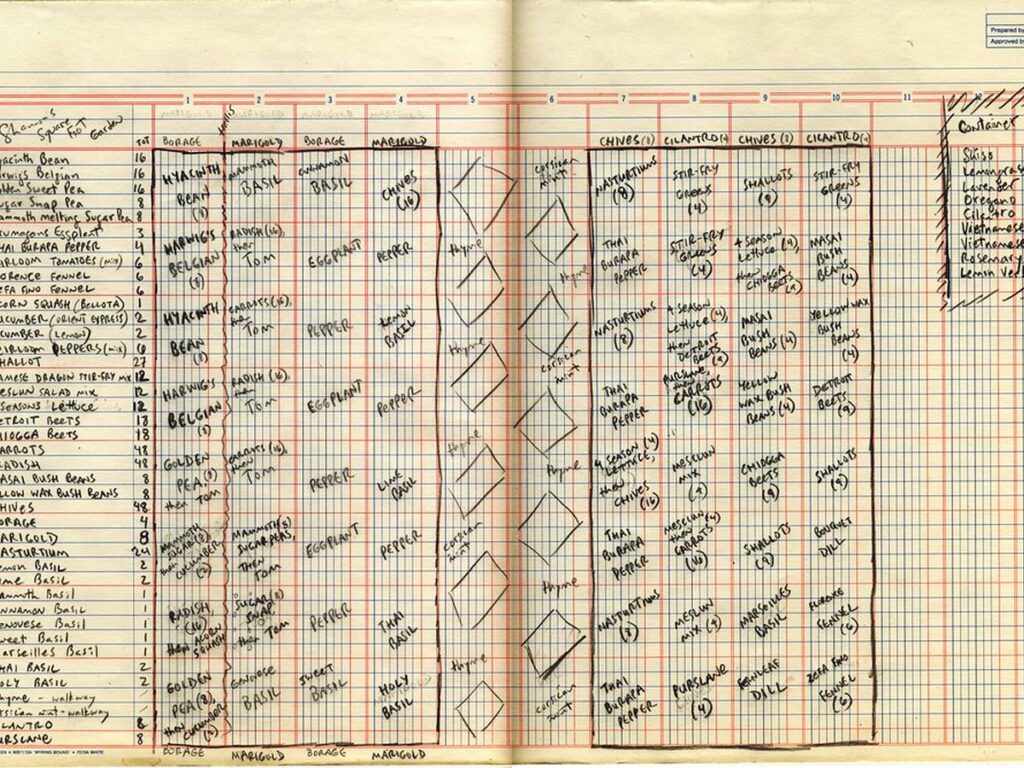 Prepared by
Approved by
1 2 3 4 5 6 7 8 9 10 11
Shannon's
Square Foot Garden
TOT
yacinth Bean 16
rwigs Belgian 16
olden Sweet Pea 16
ugar Snap Pea 8
ammoth Melting Sugar Pea 8
Eggplant 3
HAI BURAPA PEPPER 4
EIRLOOM TOMATOES (MIX) 6
ORENCE FENNEL 6
EFA FINO FENNEL 6
CORN SQUASH (BELLOTA) 1
UCUMBER (ORIENT EXPRESS) 2
CUMBER (LEMON) 2
EIRLOOM PEPPERS (MIX) 6
HALLOT 27
AMESE DRAGON STIR-FRY MIX 12
ESCLUN SALAD MIX 12
SEASONS LETTUCE 12
ETROIT BEETS 18
HIOGGA BEETS 18
ARROTS 48
ADISH 48
ASAI BUSH BEANS 8
LLOW WAX BUSH BEANS 8
HIVES 48
ORAGE 4
ARIGOLD 8
ASTURTIUM 24
emon BASIL 2
ime BASIL 2
ammoth Basil 1
NNAMON BASIL 1
enovese Basil 1
weet Basil 1
arseilles Basil 1
HAI BASIL 2
OLY BASIL 2
hyme - walkway
rsican mint - walkway
ILANTRO 8
URSLANE 8
BORAGE
trellis
MARIGOLD
BORAGE
MARIGOLD
HYACINTH BEAN (8)
MAMMOTH BASIL
CINNAMON BASIL
CHIVES (16)
HARWIG'S BELGIAN (8)
RADISH (16), then TOM
EGGPLANT
PEPPER
HYACINTH BEAN (8)
CARROTS (16), then TOM
PEPPER
LEMON BASIL
HARWIG'S BELGIAN (8)
RADISH (16), then TOM
EGGPLANT
PEPPER
GOLDEN PEA, (8) then TOM
CARROTS (16), then TOM
PEPPER
LIME BASIL
MAMMOTH SUGAR (8) then CUCUMBER (2)
MAMMOTH (8) SUGAR PEAS, THEN TOM
EGGPLANT
PEPPER
RADISH, (16) then ACORN SQUASH
SUGAR (8) SNAP, then TOM
PEPPER
THAI BASIL
GOLDEN PEA (8), then CUCUMBER (2)
GENOVESE BASIL
SWEET BASIL
HOLY BASIL
BORAGE MARIGOLD BORAGE MARIGOLD
corsican mint
thyme
thyme
thyme
corsican mint
thyme
thyme
corsican mint
thyme
thyme
corsican mint
CHIVES (8) CILANTRO (4) CHIVES (8) CILANTRO (4)
NASTURTIUMS (8)
STIR-FRY GREENS (4)
SHALLOTS (9)
STIR-FRY GREENS (4)
THAI BURAPA PEPPER
STIR-FRY GREENS (4)
4 SEASON LETTUCE (4) then CHIOGGA BEETS (9)
MASAI BUSH BEANS (4)
NASTURTIUMS (8)
4 SEASON LETTUCE (4), then DETROIT BEETS (9)
MASAI BUSH BEANS (4)
YELLOW WAX BUSH BEANS (4)
THAI BURAPA PEPPER
PURSLANE, then CARROTS (16)
YELLOW WAX BUSH BEANS (4)
DETROIT BEETS (9)
4 SEASON (4) LETTUCE, then CHIVES (16)
MESCLUN MIX (4)
CHIOGGA BEETS (9)
SHALLOTS (9)
THAI BURAPA PEPPER
MESCLUN (4) then CARROTS (16)
SHALLOTS (9)
BOUQUET DILL
NASTURTIUMS (8)
MESCLUN MIX (4)
MARSEILLES BASIL
FENNEL (6)
THAI BURAPA PEPPER
PURSLANE (4)
FERNLEAF DILL
ZEFA FINO FENNEL (6)
Container
Shiso
Lemongras
Lavender
Oregano
Cilantro
Vietnamese
Vietnamese
Rosemary
Lemon Ver